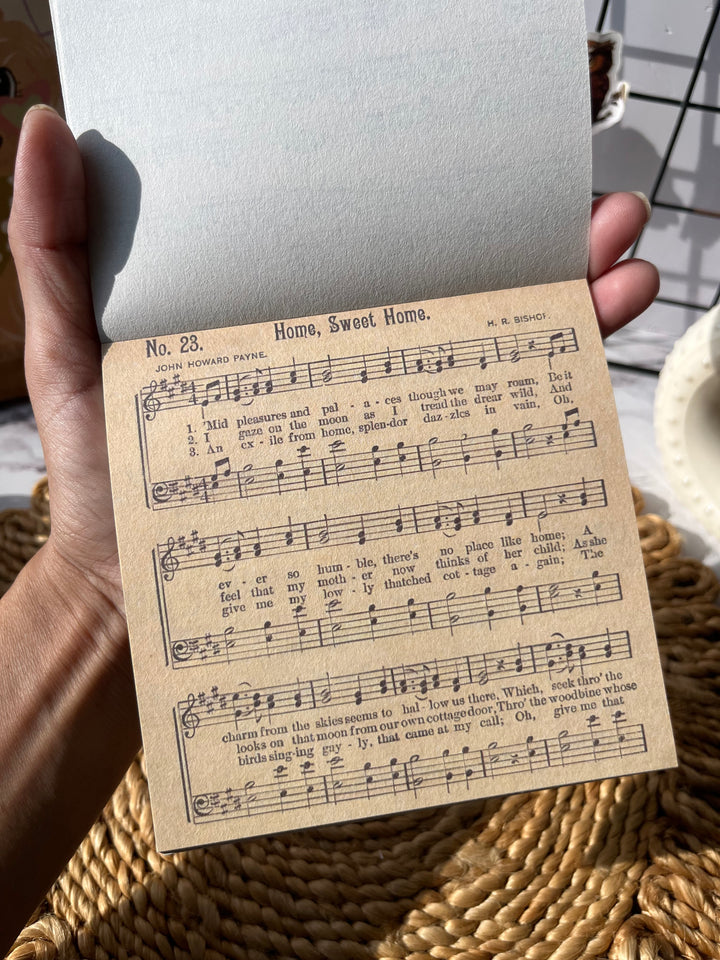 No. 23.
Home, Sweet Home.
JOHN HOWARD PAYNE.
H. R. BISHOP.
1. 'Mid pleasures and pal - a - ces though we may roam, Be it
2. I gaze on the moon as I tread the drear wild, And
3. An ex - ile from home, splen-dor daz-zles in vain, Oh,
ev - er so hum - ble, there's no place like home; A
feel that my moth - er now thinks of her child; As she
give me my low - ly thatched cot - tage a - gain; The
charm from the skies seems to hal - low us there, Which, seek thro' the
looks on that moon from our own cottage door, Thro' the woodbine whose
birds sing-ing gay - ly, that came at my call; Oh, give me that